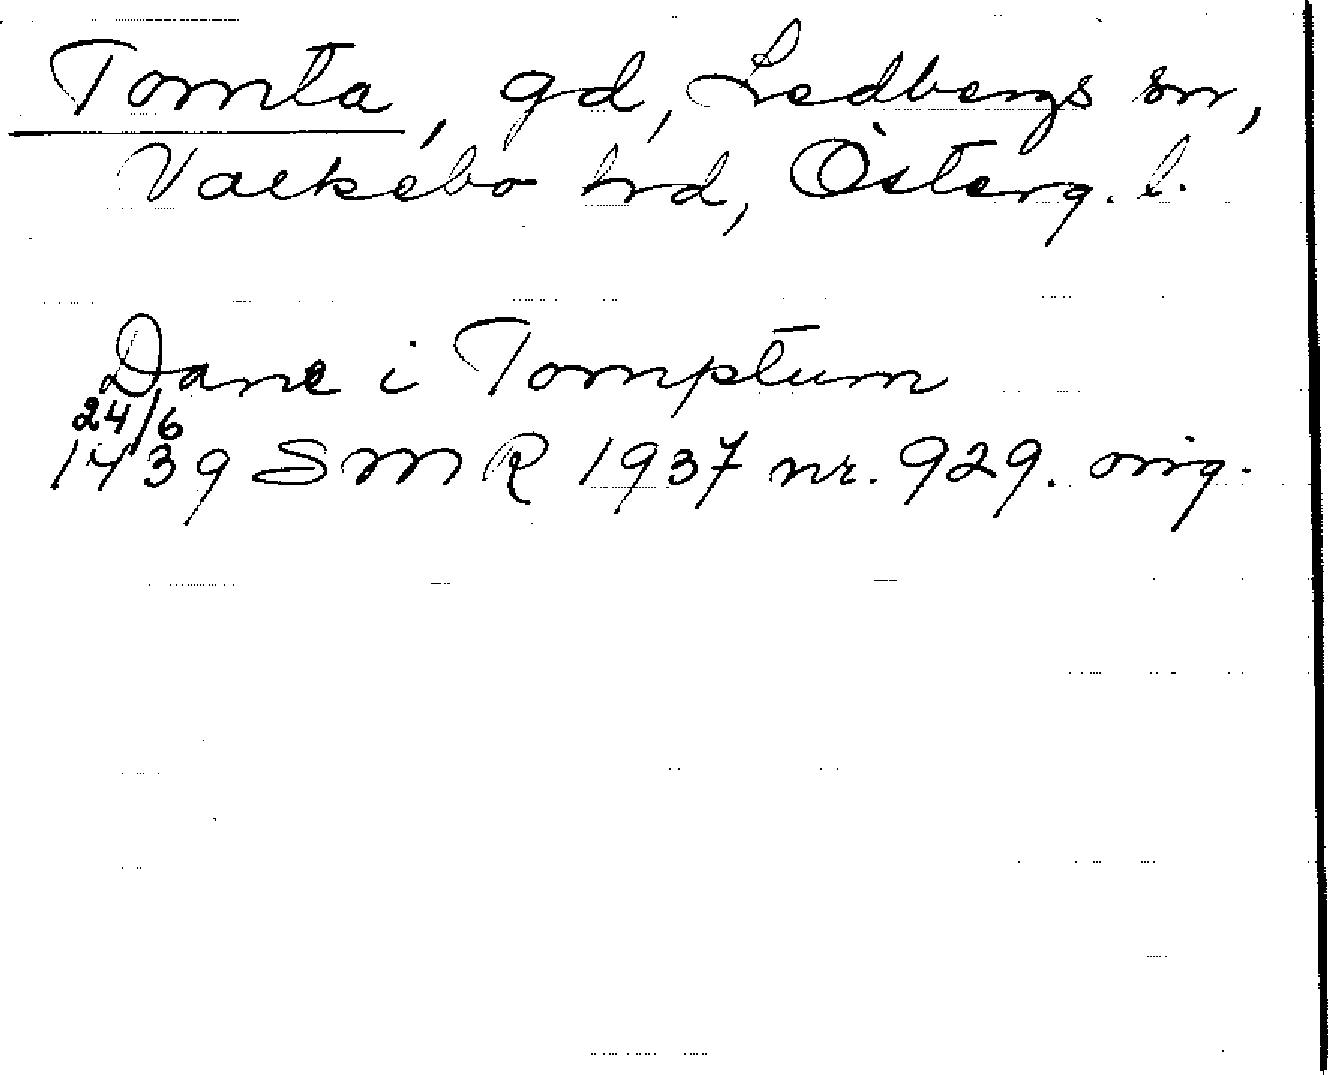 Tomta, gd, Ledbergs sn,
Valkebo hrd, Österg. l.
Dane i Tomptum
24/6
1439 SMR 1937 nr. 929. orig.